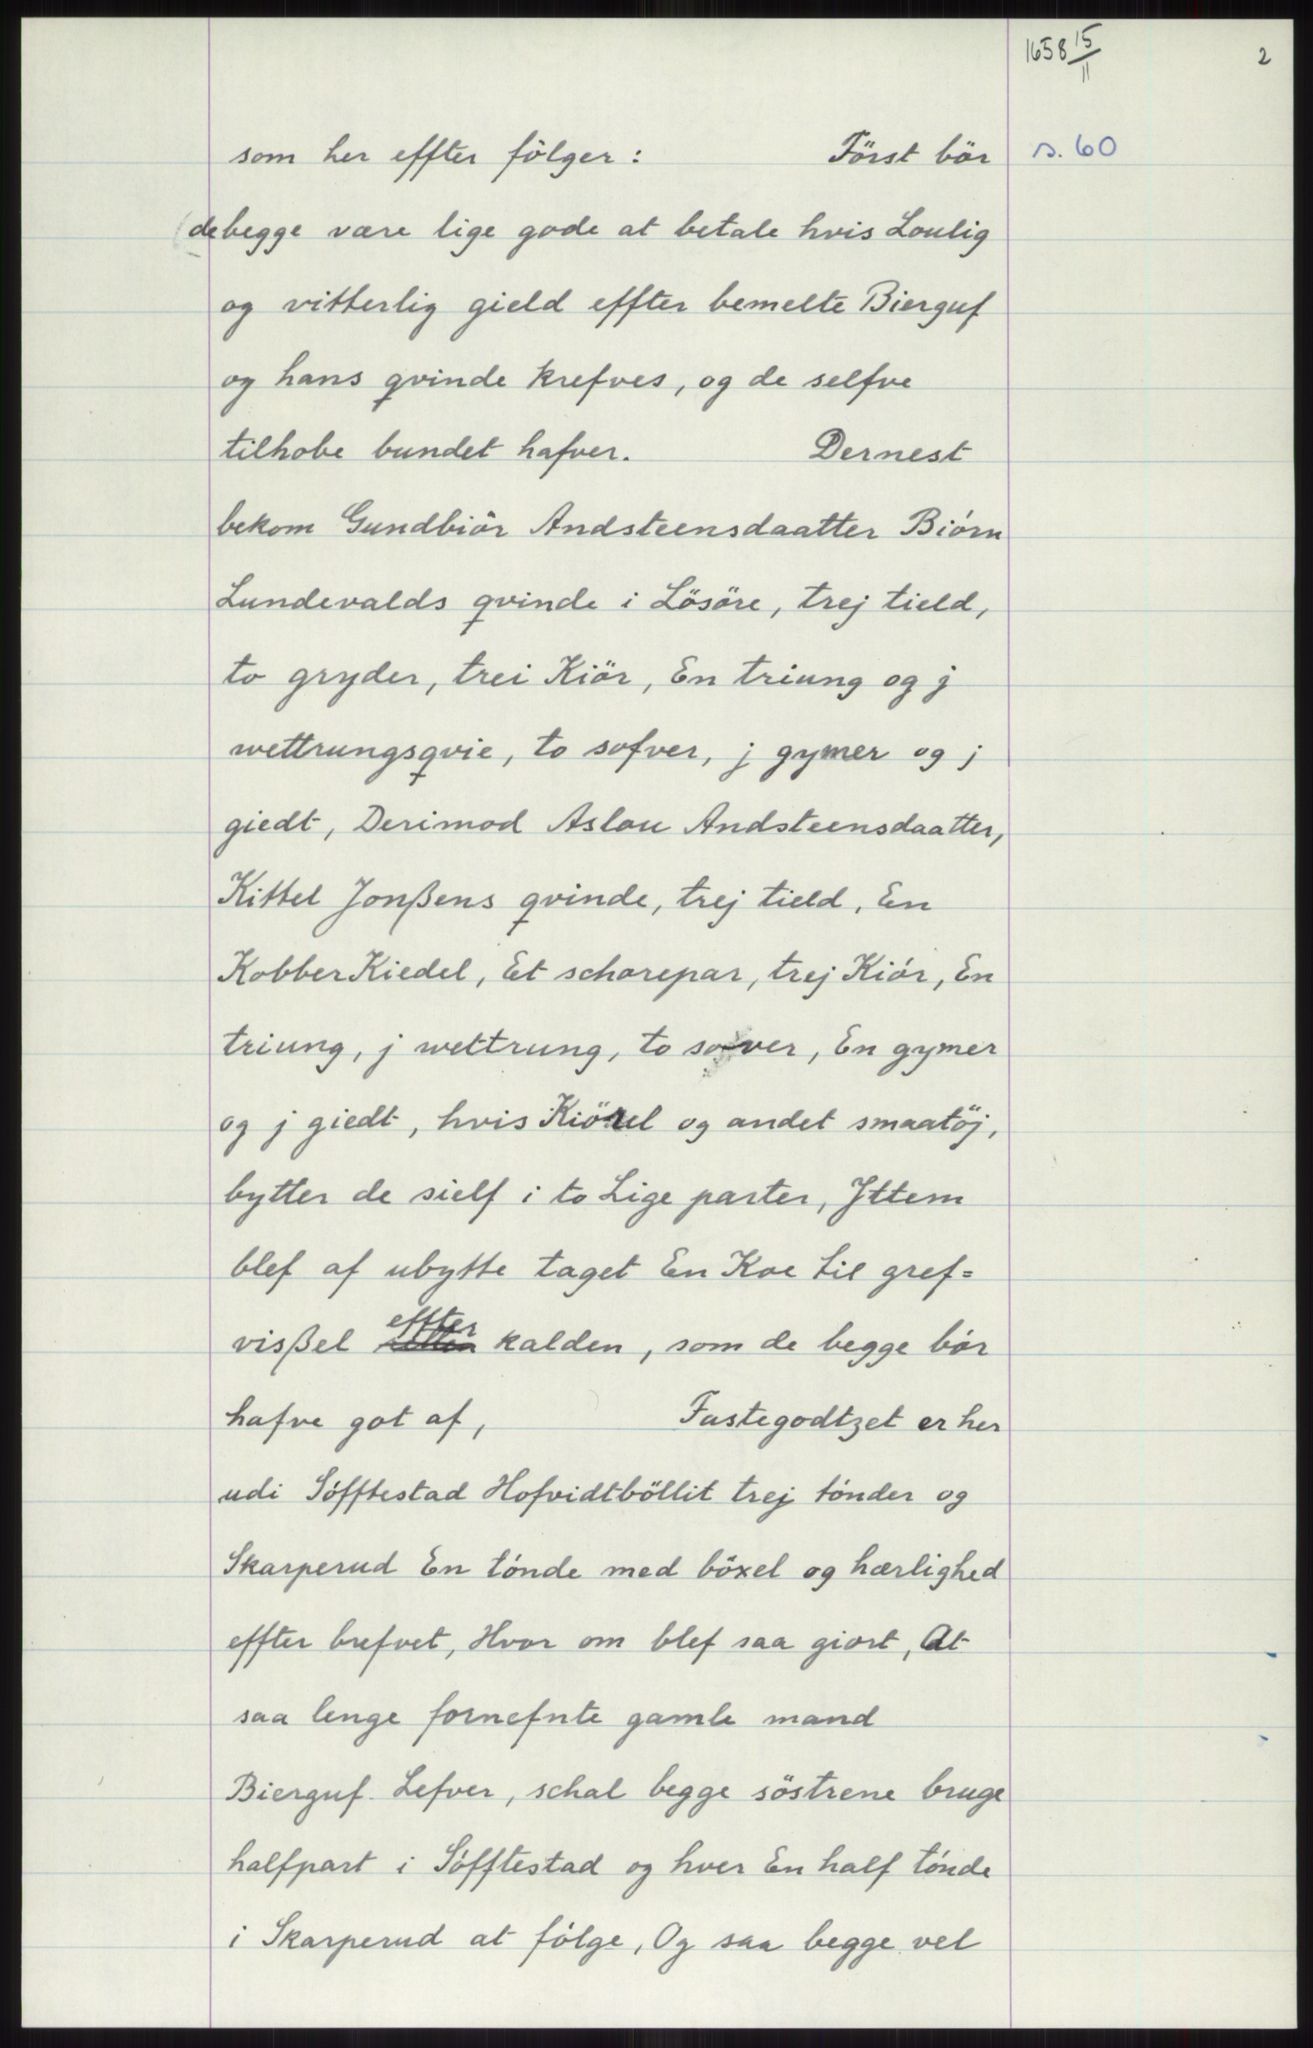 1658 15/11
2
som her effter fölger: Först bör
s. 60
(de begge være lige gode at betale hvis Loulig
og vitterlig gield effter bemelte Bierguf
og hans qvinde krefves, og de selfve
tilhobe bundet hafver. Dernest
bekom Gundbiör Andsteensdaatter Biórn
Lundevalds qvinde i Lösöre, trej tield,
to gryder, trei Kiör, En triung og j
wettrungsqvie, to sofver, j gymer og j
giedt, Derimod Aslou Andsteensdaatter,
Kittel Jonßens qvinde, trej tield, En
Kobber Kiedel, Et schorepar, trej Kiór, En
triung, j wettrung, to sover, En gymer
og j giedt, hvis Kiörel og andet smaatöj,
bytter de sielf i to Lige parter, Ittem
blef af ubytte taget En Koe til gref=
vißel effter kalden, som de begge bór
hafve got af, Fastegodtzet er her
udi Sófftestad Hofvidtböllit trej tónder og
Skarperud En tónde med böxel og hærlighed
effter brefvet, Hvor om blef saa giort, At
saa lenge fornefnte gamle mand
Bierguf Lefver, schal begge söstrene bruge
halfpart i Sófftestad og hver En half tónde
i Skarperud at fólge, Og saa begge vel